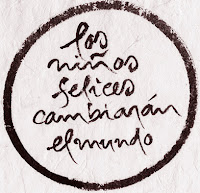 los
niños
felices
cambiarán
el mundo